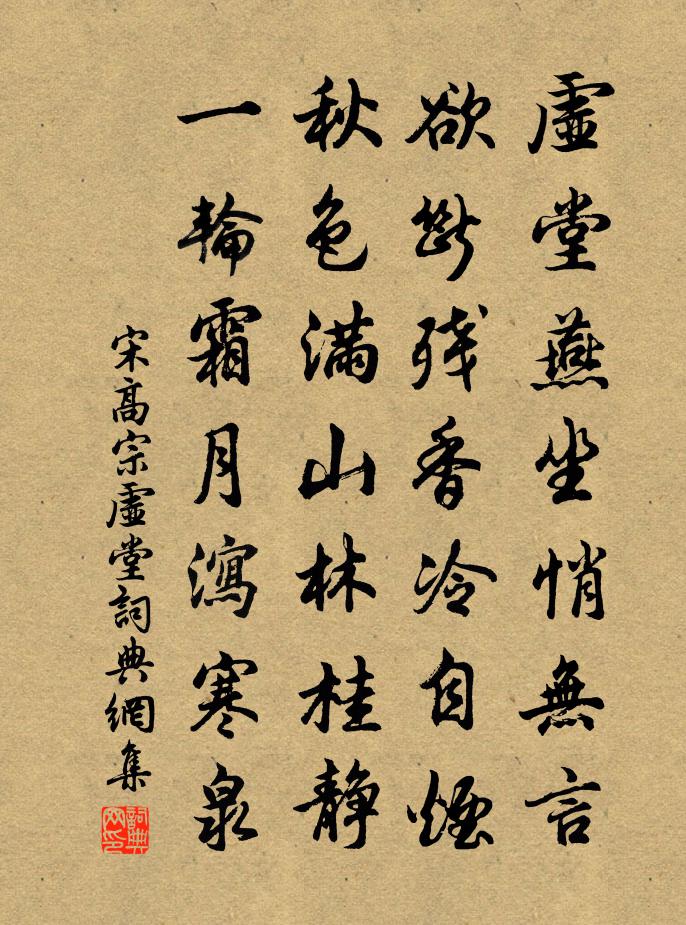 虛堂燕坐悄無言
欲斷残香冷自煙
秋色滿山林桂静
一輪霜月瀉寒泉
宋高宗虛堂詞典網集
詞典網印